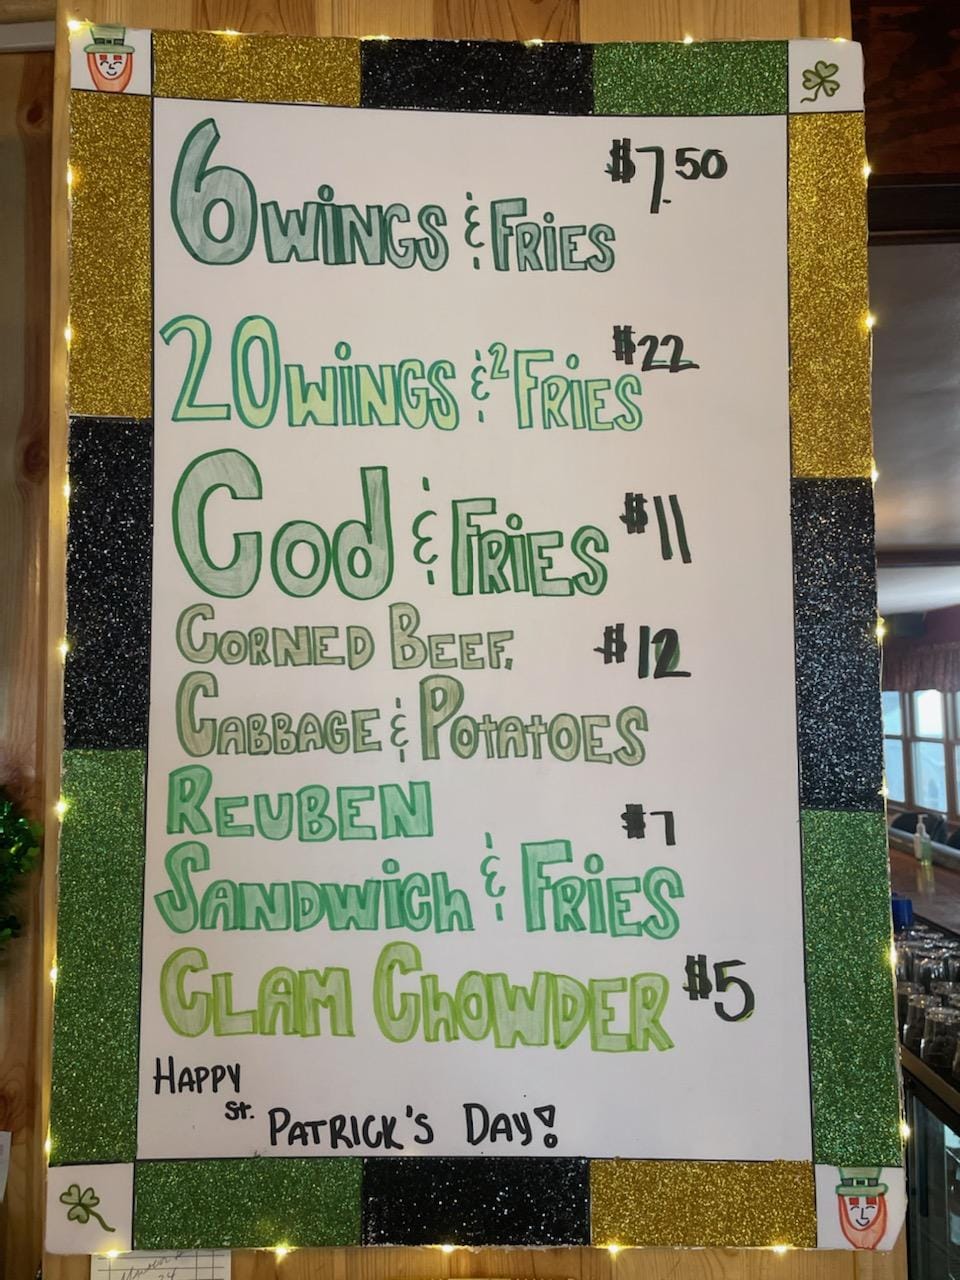 6 WiNGS & FRiES $7.50
20 WiNGS & 2 FRiES $22
Cod & FRiES $11
CORNED BEEF, $12
CABBAGE & POTATOES
REUBEN $7
SANDWiCh & FRiES
CLAM ChOWDER $5
HAPPY
St.
PATRICK'S DAY!